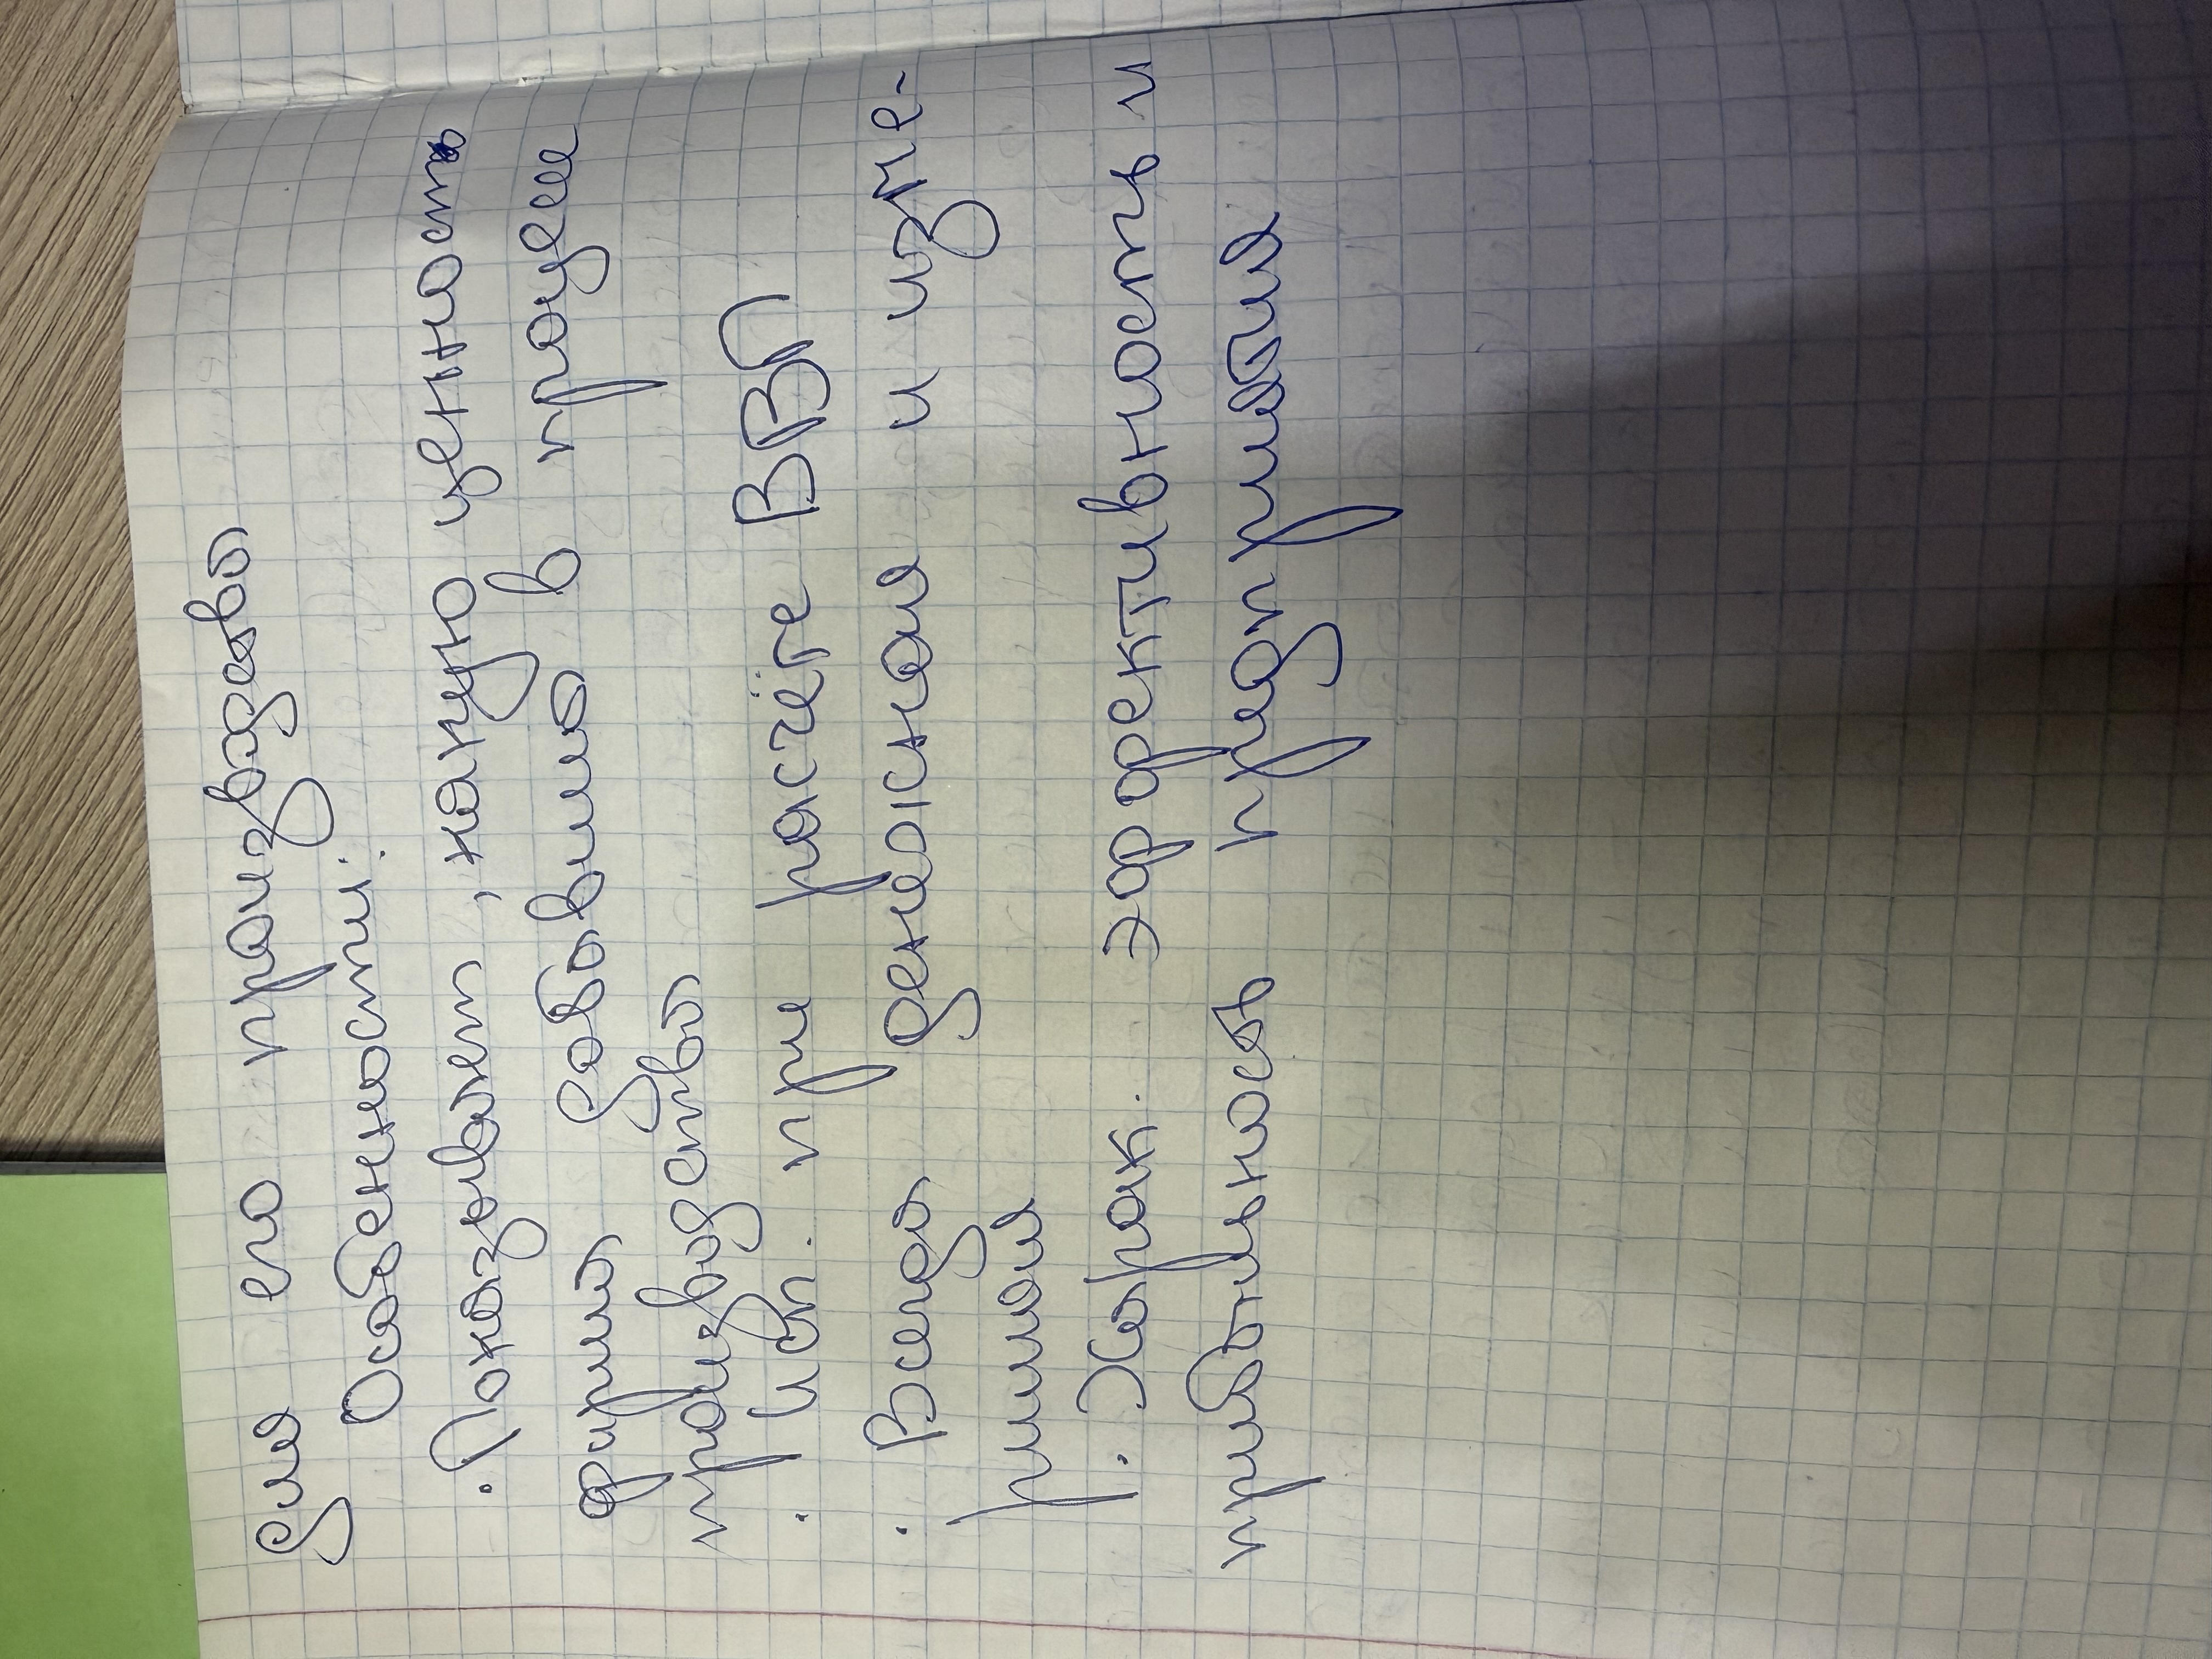 для его производство
Особенности:
· Показывает, какую ценность
фирма добавила в процессе
производства
· Исп. при расчёте ВВП
· Всегда денежная и изме-
римая
· Харак. эффективность и
прибыльность предприятия